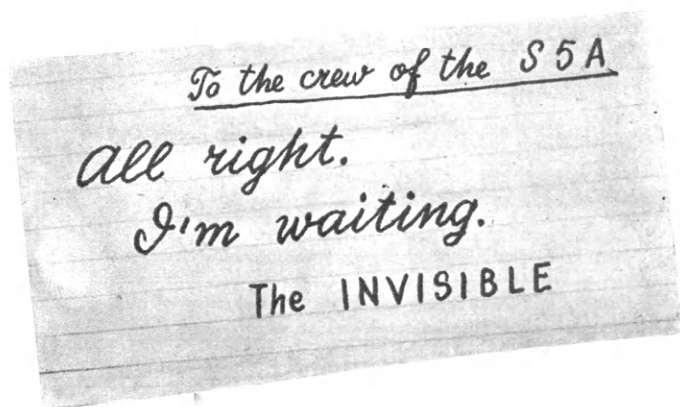 To the crew of the S 5 A
All right.
I'm waiting.
The INVISIBLE